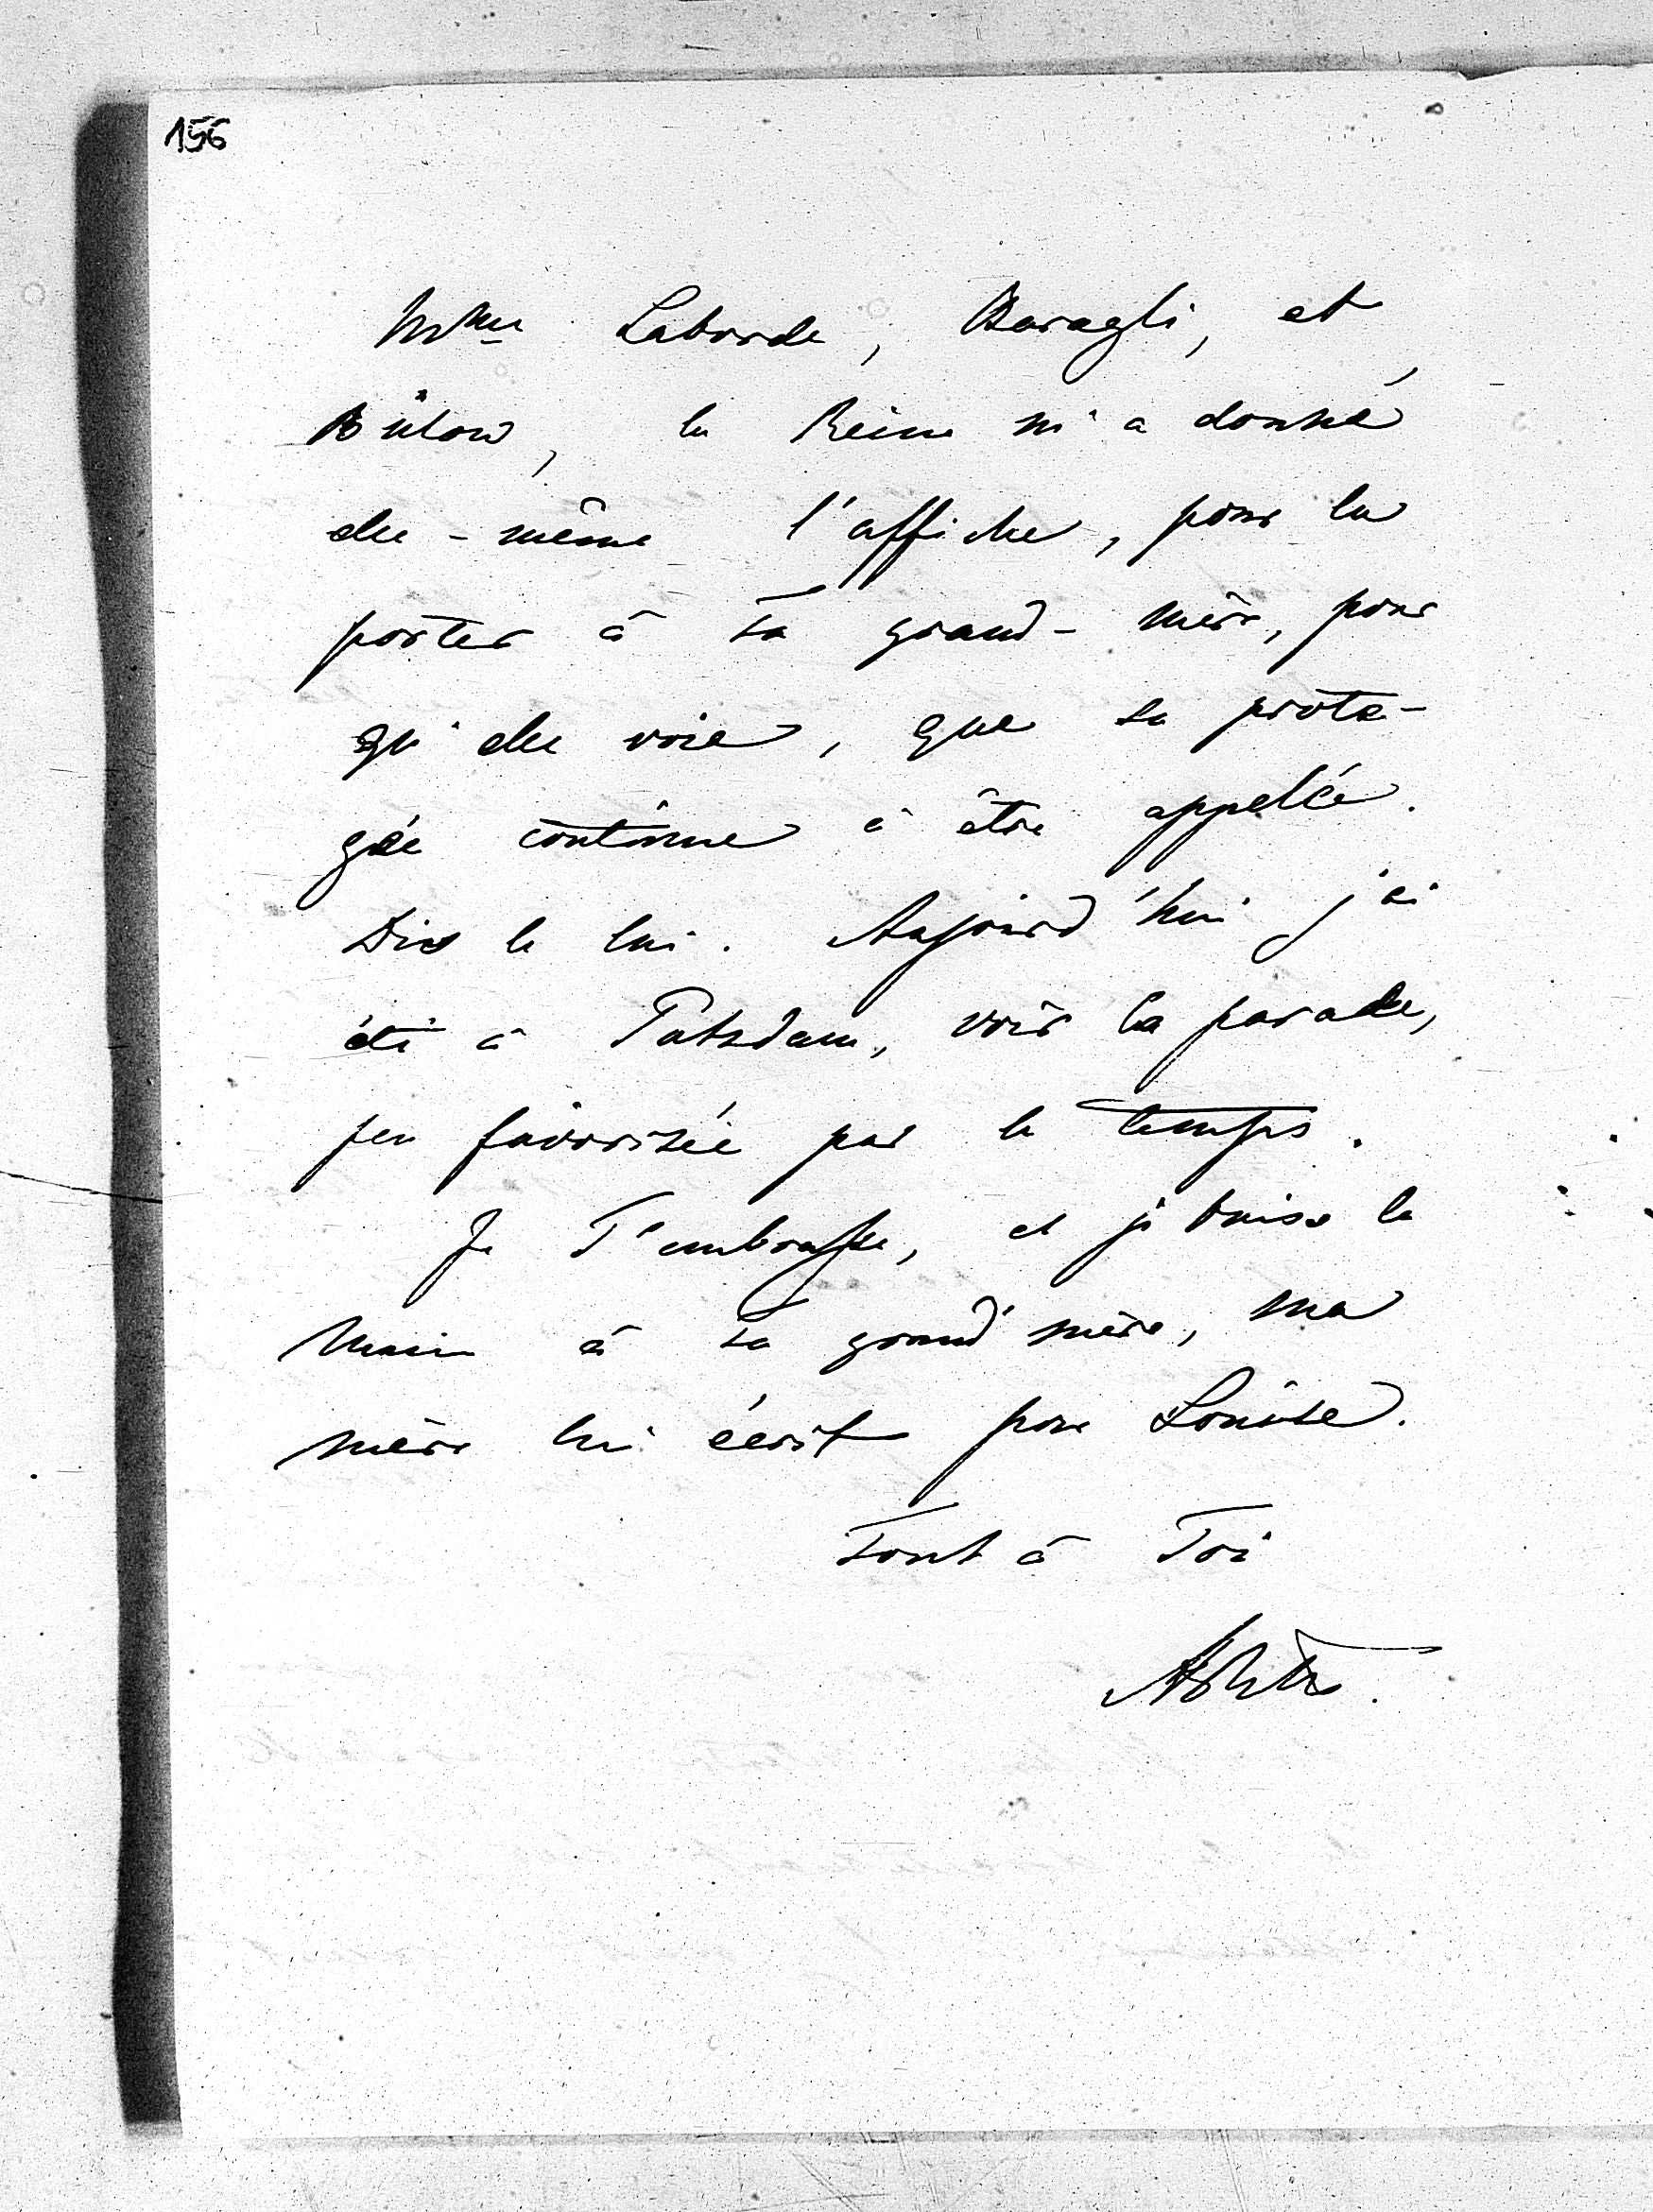 156
Mmes Laborde, Baragli, et
Bülow, la Reine m'a donné
elle-même l'affiche, pour la
porter à Ta grand-mère, pour
qu'elle voie, que sa proté-
gée continue à être appelée.
Dis le lui. Aujourd'hui j'ai
été à Potsdam, voir la parade,
peu favorisée par le temps.
Je T'embrasse, et je baise la
main à Ta grand'mère, ma
mère lui écrit pour Louise.
Tout à Toi